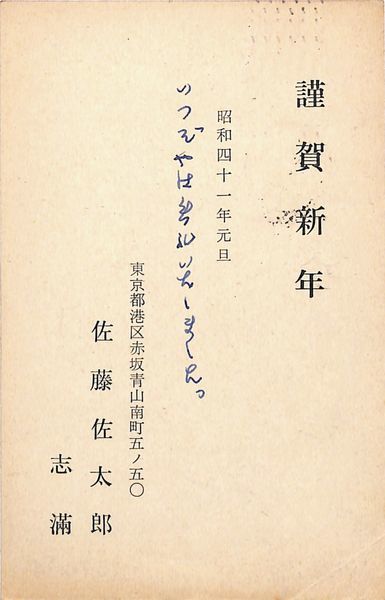 謹賀新年
昭和四十一年元旦
いつぞやは失礼いたしました。
東京都港区赤坂青山南町五ノ五〇
佐藤佐太郎
志満